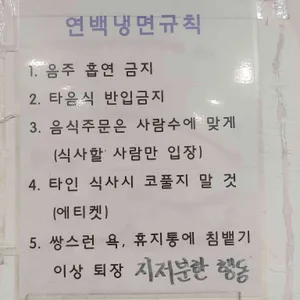 연백냉면규칙
1. 음주 흡연 금지
2. 타음식 반입금지
3. 음식주문은 사람수에 맞게
(식사할 사람만 입장)
4. 타인 식사시 코풀지 말 것
(에티켓)
5. 쌍스런 욕, 휴지통에 침뱉기
이상 퇴장 지저분한 행동